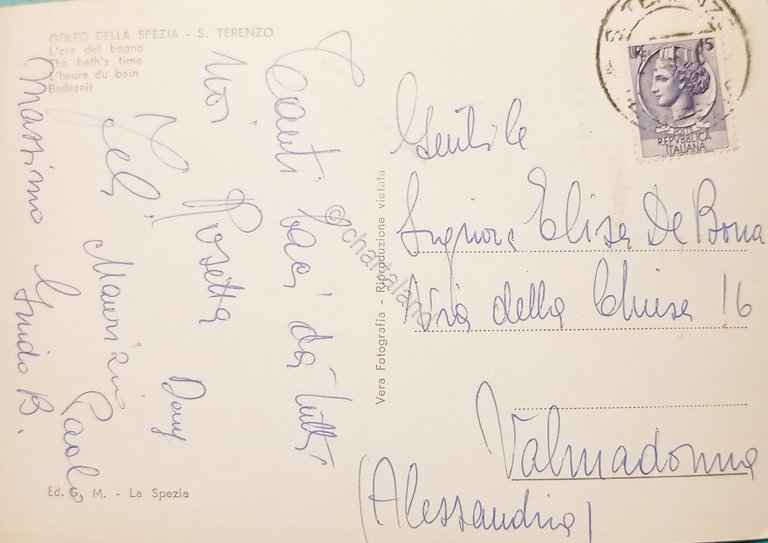 GOLFO DELLA SPEZIA - S. TERENZO
L'ora del bagno
The bath's time
L'heure du bain
Badezeit
Tanti baci da tutti
Noi Rosetta Dany
Maurizio Paolo
Massimo
Guido B.
Ed. G. M. - La Spezia
Vera Fotografia - Riproduzione vietata
LIRE 15
POSTE
REPVBBLICA
ITALIANA
Gentile
Signora Elisa De Bona
Via della Chiesa 16
Valmadonna
(Alessandria)
© chartaland